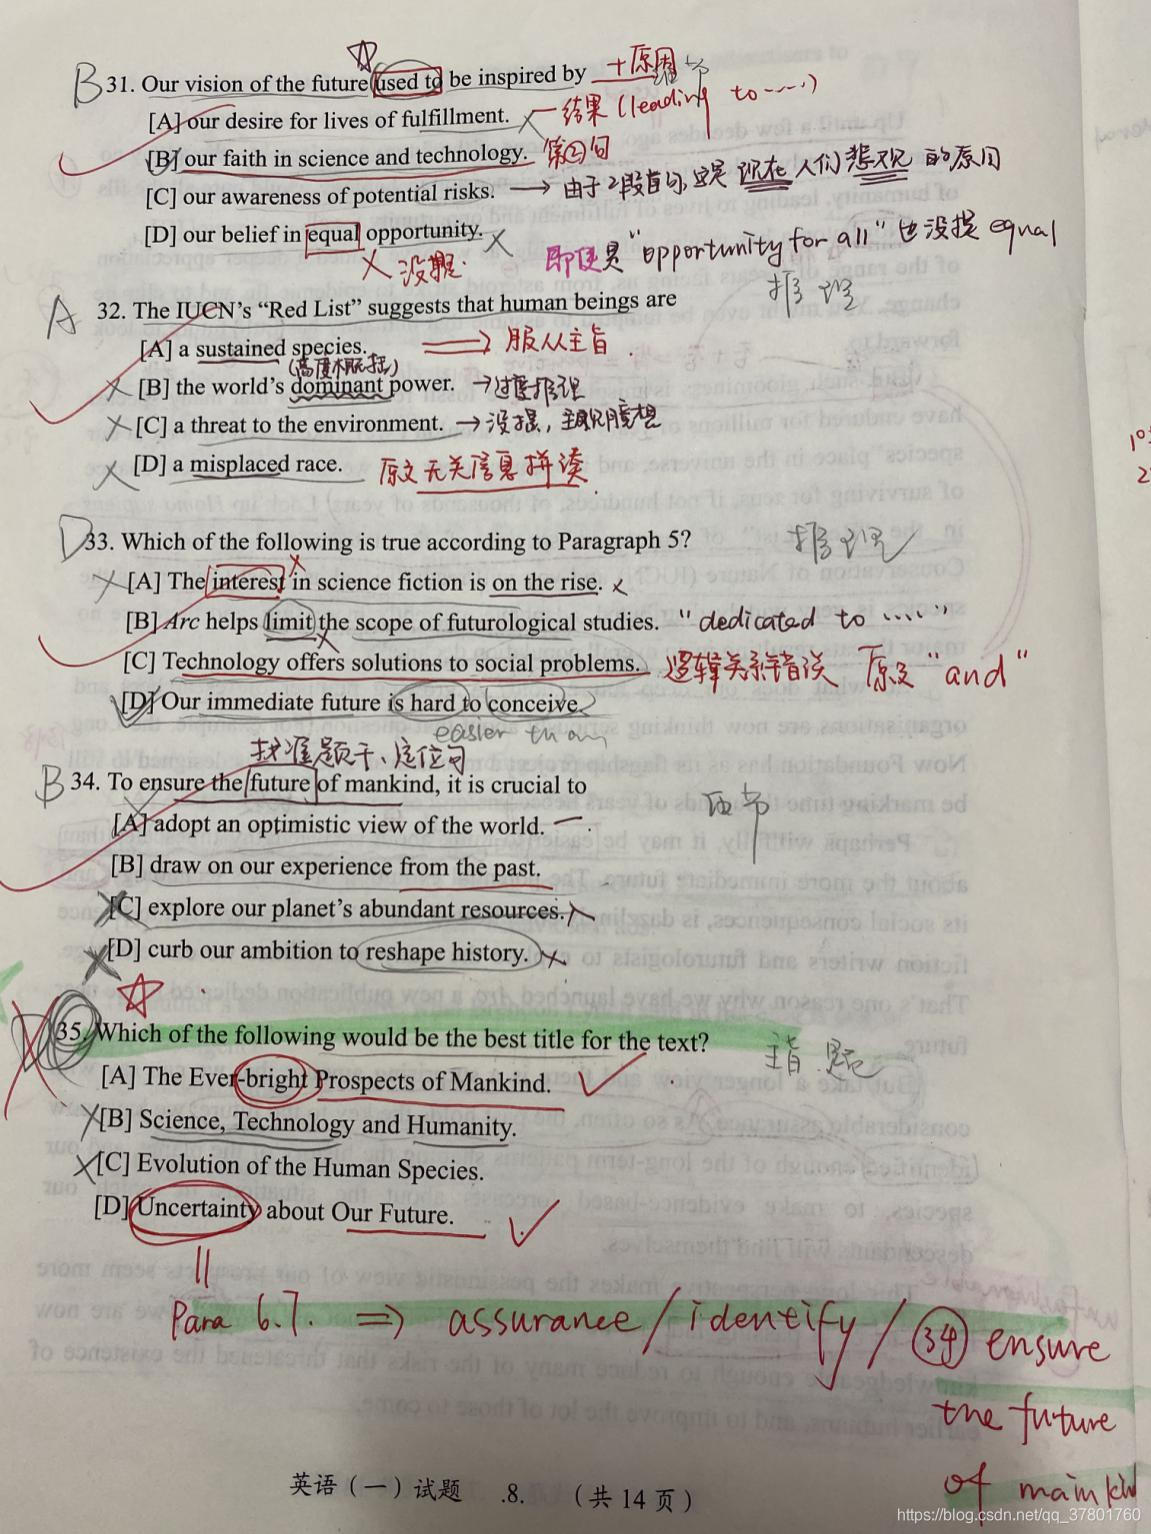 B 31. Our vision of the future used to be inspired by ____ +原因
[A] our desire for lives of fulfillment. 结果 (leading to ......)
[B] our faith in science and technology. 第②句
[C] our awareness of potential risks. → 由于2段首句,这是现在人们悲观的原因
[D] our belief in equal opportunity. × 即使是 "opportunity for all" 也没提 equal
× 没提.
推理
A 32. The IUCN's "Red List" suggests that human beings are
[A] a sustained species. ⇒ 服从主旨.
[B] the world's dominant power. →过度推理
[C] a threat to the environment. →没提,主观臆想
[D] a misplaced race. 原文无关信息拼凑
D 33. Which of the following is true according to Paragraph 5? 推理
[A] The interest in science fiction is on the rise. ×
[B] Arc helps limit the scope of futurological studies. "dedicated to ......"
[C] Technology offers solutions to social problems. 逻辑关系错误 原文 "and"
[D] Our immediate future is hard to conceive.
easier than
找准题干、定位句
B 34. To ensure the future of mankind, it is crucial to
[A] adopt an optimistic view of the world.
[B] draw on our experience from the past.
[C] explore our planet's abundant resources.
[D] curb our ambition to reshape history. ×
35. Which of the following would be the best title for the text? 主旨题
[A] The Ever-bright Prospects of Mankind.
[B] Science, Technology and Humanity.
[C] Evolution of the Human Species.
[D] Uncertainty about Our Future.
Para 6.7. ⇒ assurance / identify / ㉞ ensure
the future
of mainkid
英语(一)试题 .8. (共14页)
https://blog.csdn.net/qq_37801760